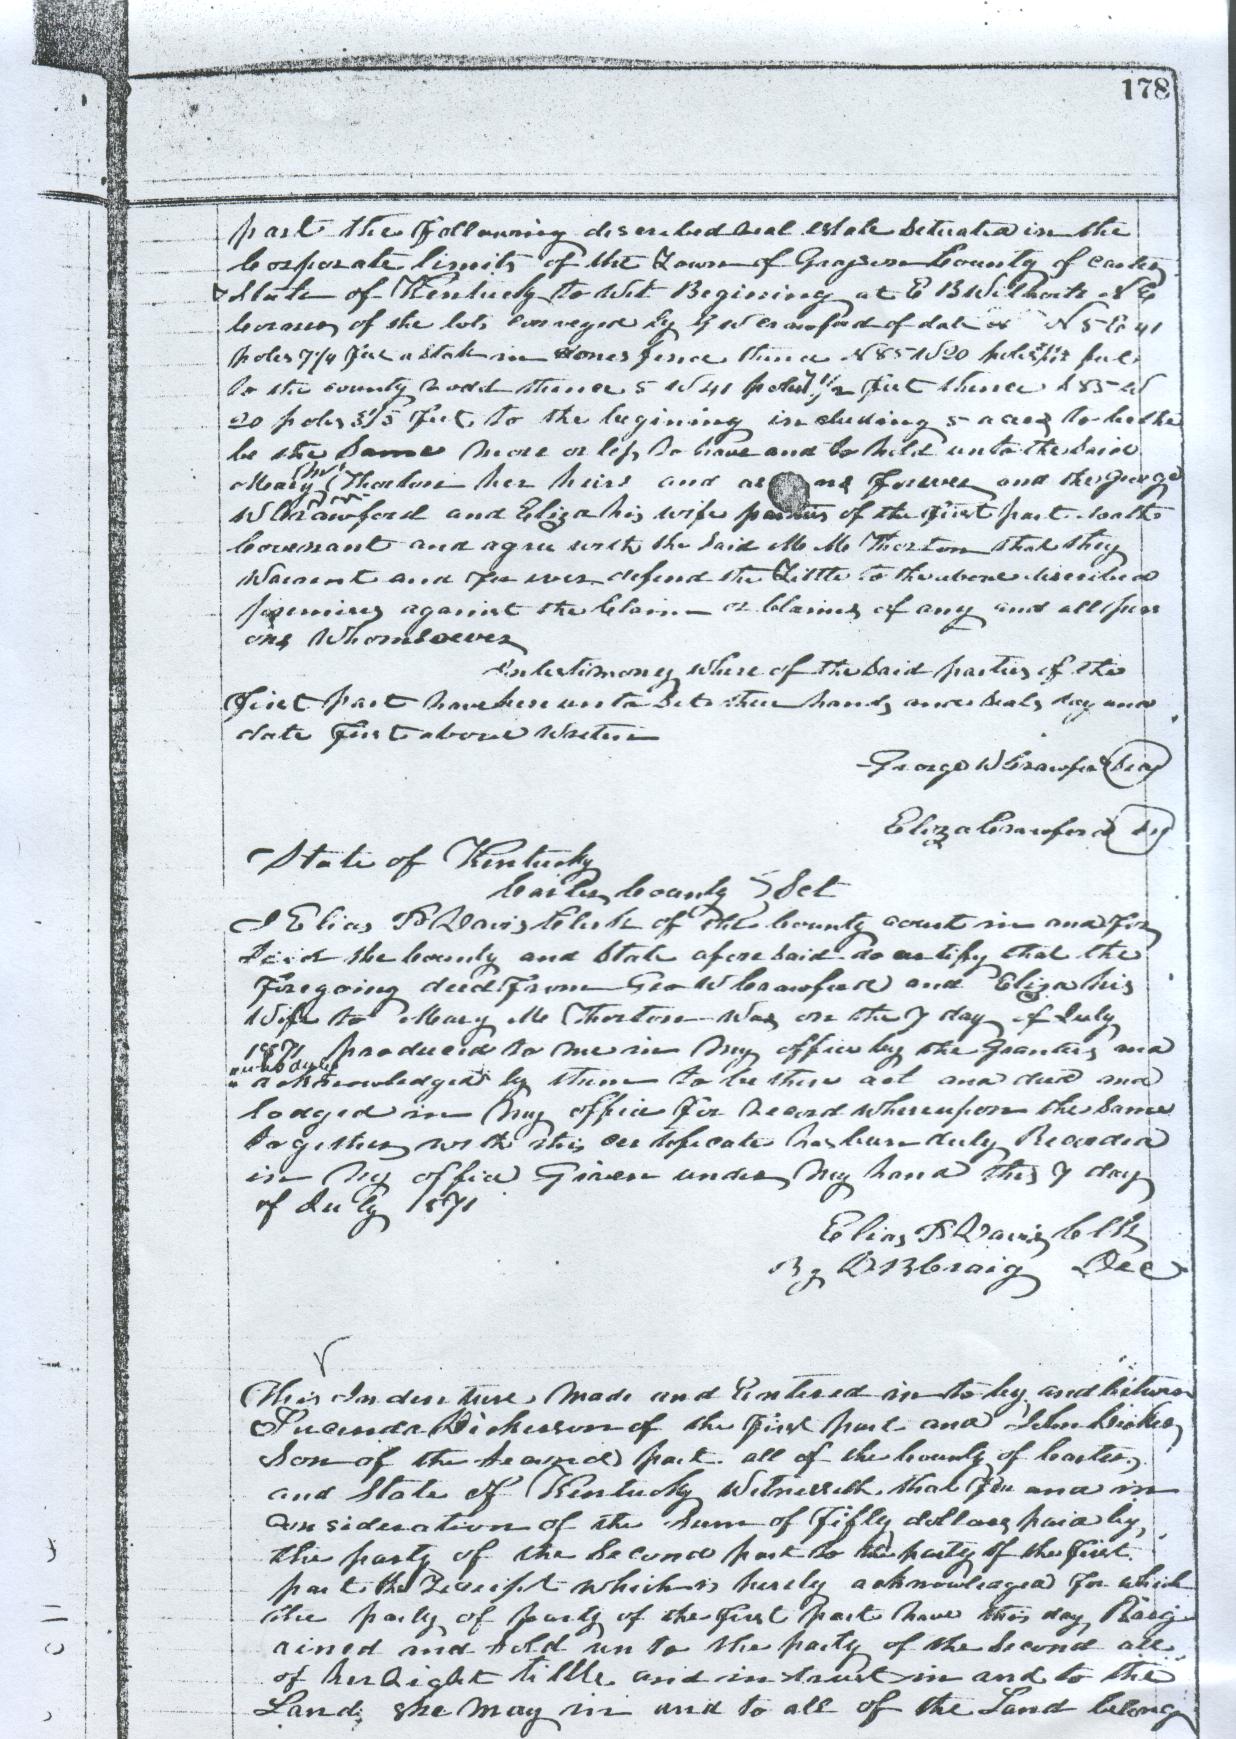 178
part the Following described real estate Situated in the
Corporate limits of the Town of Grayson County of Carter
State of Kentucky to Wit Begining at E B Wilhoits N E
Corner of the lots conveyed by G W Crawford of date N 5 E 41
poles 7 1/4 feet a stake in stones fence thence N 85 W 20 poles feet
to the county road thence S W 41 poles 7 1/2 feet thence S 85 W
20 poles 3 1/5 feet to the begining including 5 acres
be the Same more or less to have and to hold unto the said
Mary M Thorton her heirs and forever and the George
W Crawford and Eliza his wife parties of the first part doath
Covenant and agree with the Said M M Thorton that they
Warrent and For ever defend the Tittle to the above discribed
premises against the Claim or Claims of any and all pers
ons Whomsoever
In testimony where of the Said parties of the
First part have here unto Set their hands and Seals day and
date First above Written
George W Crawford Seal
Eliza Crawford
State of Kentucky
Carter County Sct
I Elias P Davis Clerk of the County court in and For
Said the County and State afore Said do certify that the
Foregoing deed From Geo W Crawford and Eliza his
Wife to Mary M Thorton Was on the 7 day of July
1871 produced to me in My office by the Grantees and
acknowledged by them to be there act and deed and
lodged in My office For Record whereupon the Same
together with this certificate has been duly Recorded
in My office Given under My hand this 7 day
of July 1871
Elias P Davis Clk
By D B Craig Dec
This Indenture Made and Entered in to by and between
Lucinda Dickerson of the First part and John Dicker
Son of the Second part all of the County of Carter
and State of Kentucky Witnesseth that For and in
Consideration of the Sum of Fifty dollars paid by
the party of the Second part to the party of the First
part the Receipt which is hereby acknowledged For which
the party of party of the First part have this day Barg
ained and Sold un to the party of the Second all
of her Right tittle and intrust in and to the
Land she may in and to all of the Land belong